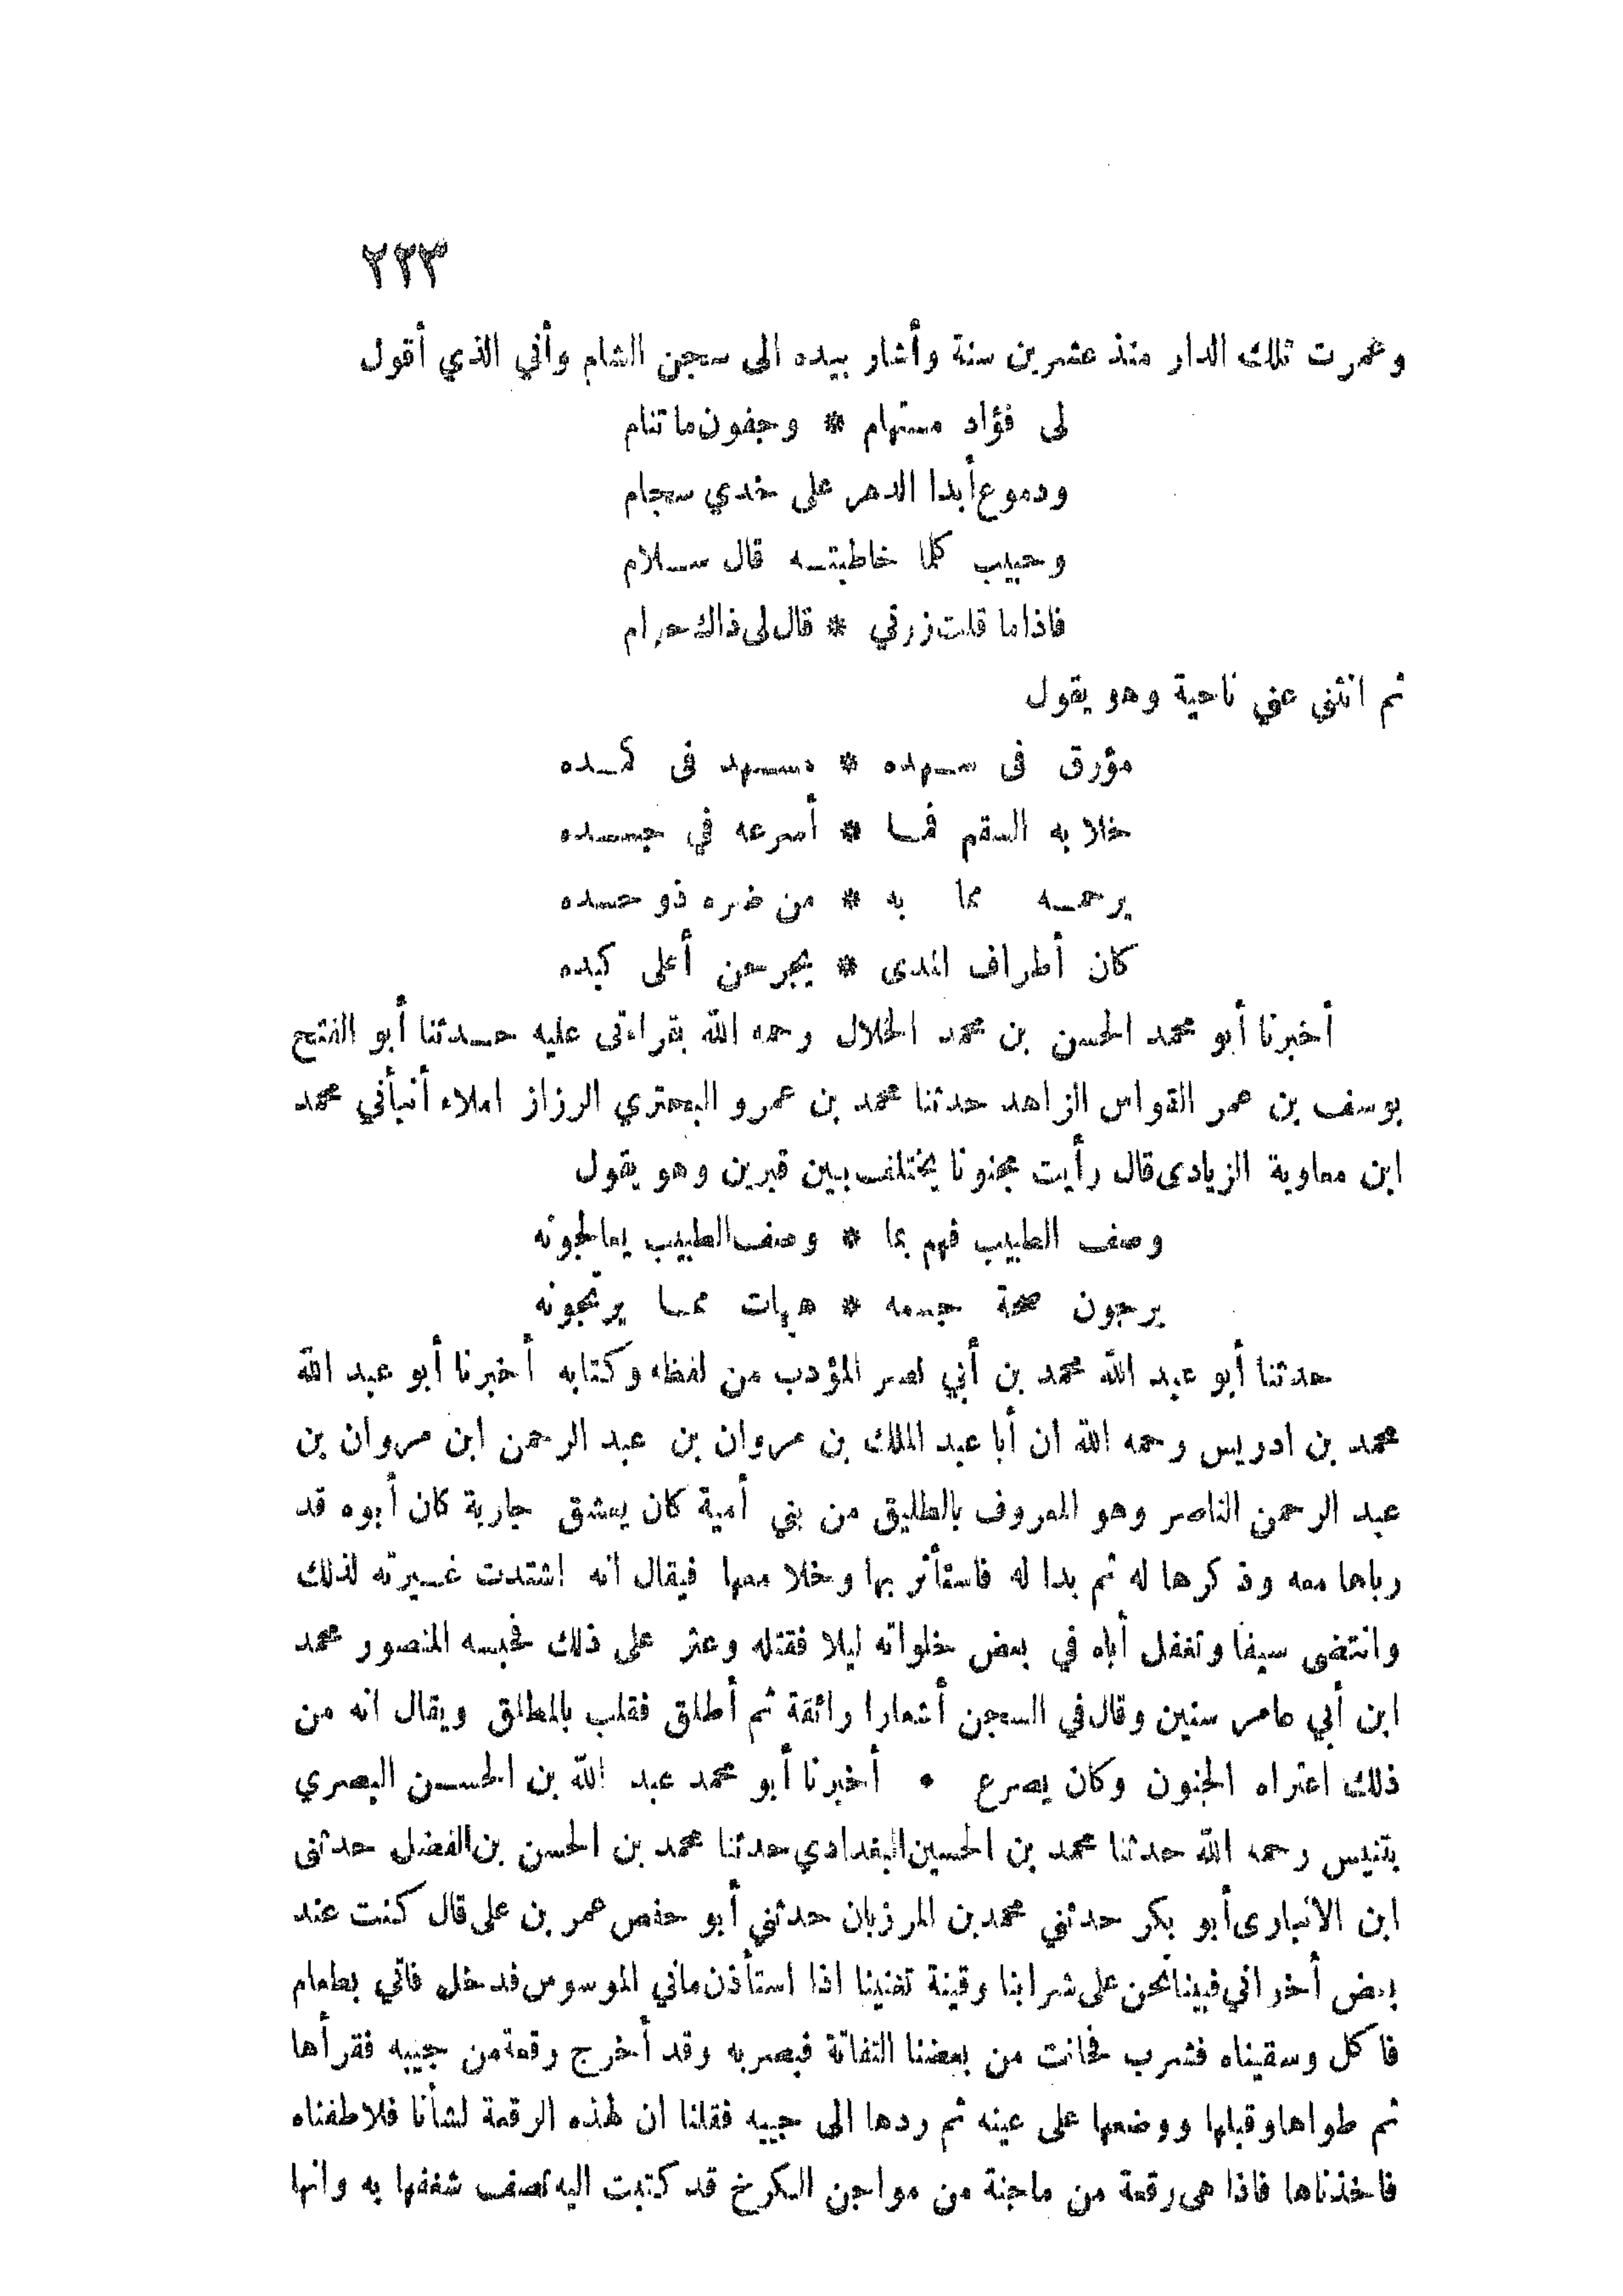 ٢٢٣
وعمرت تلك الدار منذ عشرين سنة وأشار بيده الى سجن الشام وأني الذي أقول
لى فؤاد مستهام * وجفون ما تنام
ودموع أبدا الدهر على خدي سجام
وحبيب كلما خاطبتــه قال ســلام
فاذا ما قلت زرني * قال لى ذاك حرام
ثم انثنى عني ناحية وهو يقول
مؤرق فى سـهده * مسـهد فى كمـده
خلا به السقم فمـا * أسرعه في جسـده
يرحمـه مما به * من ضره ذو حسده
كان أطراف المدى * يجرحن أعلى كبده
أخبرنا أبو محمد الحسن بن محمد الخلال رحمه الله بقراءتى عليه حـدثنا أبو الفتح
يوسف بن عمر القواس الزاهد حدثنا محمد بن عمرو البحتري الرزاز املاء أنبأني محمد
ابن معاوية الزيادى قال رأيت مجنونا يختلف بين قبرين وهو يقول
وصف الطبيب فهم بما * وصف الطبيب يعالجونه
يرجون صحة جسمه * هيهات ممـا يرتجونه
حدثنا أبو عبد الله محمد بن أبي نصر المؤدب من لفظه وكتابه أخبرنا أبو عبد الله
محمد بن ادريس رحمه الله ان أبا عبد الملك بن مروان بن عبد الرحمن ابن مروان بن
عبد الرحمن الناصر وهو المعروف بالطليق من بني أمية كان يعشق جارية كان أبوه قد
رباها معه وذكرها له ثم بدا له فاستأثر بها وخلا معها فيقال انه اشتدت غـيرته لذلك
وانتضى سيفا وتغفل أباه في بعض خلواته ليلا فقتله وعثر على ذلك فحبسه المنصور محمد
ابن أبي عامر سنين وقال في السجن أشعارا رائقة ثم أطلق فقلب بالمطلق ويقال انه من
ذلك اعتراه الجنون وكان يصرع • أخبرنا أبو محمد عبد الله بن الحسـن البصري
بتنيس رحمه الله حدثنا محمد بن الحسين البغدادي حدثنا محمد بن الحسن بن الفضل حدثنى
ابن الانبارى أبو بكر حدثني محمد بن المرزبان حدثني أبو حفص عمر بن على قال كنت عند
بعض أخواني فبينا نحن على شرابنا وقينة تغنينا اذا استأذن ماني الموسوس فدخل فاتي بطعام
فاكل وسقيناه فشرب فحانت من بعضنا التفاتة فبصر به وقد أخرج رقعة من جيبه فقرأها
ثم طواها وقبلها ووضعها على عينه ثم ردها الى جيبه فقلنا ان لهذه الرقعة لشأنا فلاطفناه
فاخذناها فاذا هى رقعة من ماجنة من مواجن الكرخ قد كتبت اليه تصف شغفها به وانها